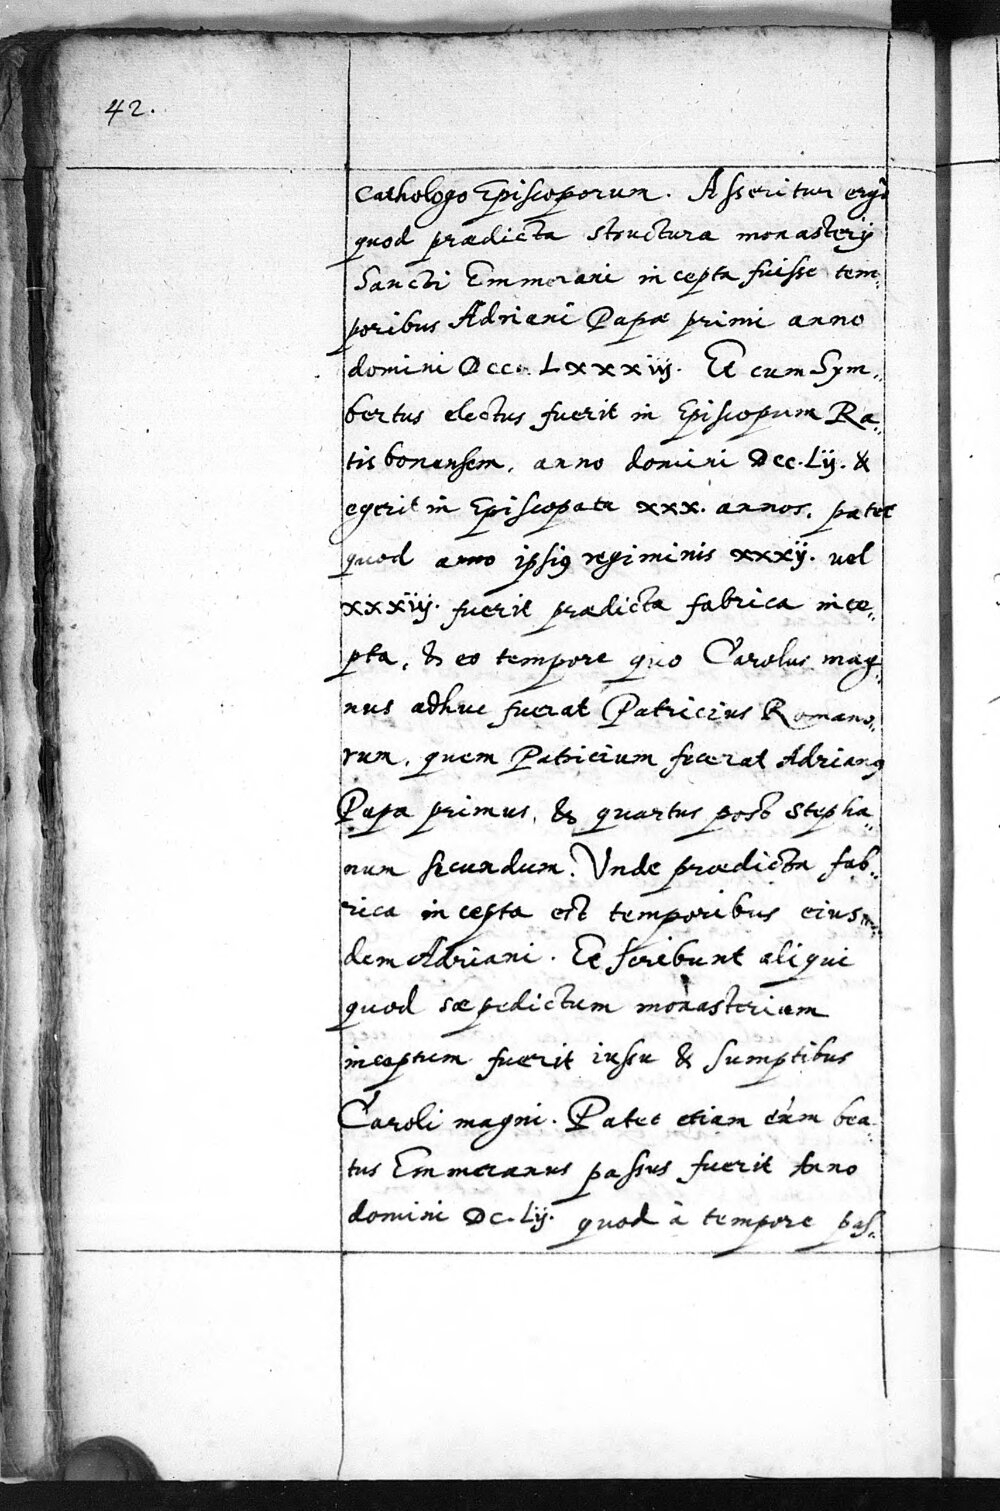 42.
Cathologo Episcoporum. Asseritur ergò
quod prædicta structura monasterij
Sancti Emmerani incepta fuisse tem„
poribus Adriani Papæ primi anno
domini Dcc. Lxxxiij. Et cum Sym„
bertus electus fuerit in Episcopum Ra„
tisbonensem, anno domini Dcc. Lij. &
egerit in Episcopatu xxx. annos, patet
quod anno ipsiꝯ regiminis xxxij. uel
xxxiij. fuerit prædicta fabrica ince„
pta, & eo tempore quo Carolus mag„
nus adhuc fuerat Patricius Romano„
rum, quem Patricium fecerat Adrianꝯ
Papa primus, & quartus post Stepha„
num secundum. Vnde prædicta fab„
rica incepta est temporibus eius„
dem Adriani. Et scribunt aliqui
quod sæpedictum monasterium
inceptum fuerit iussu & sumptibus
Caroli magni. Patet etiam cùm bea„
tus Emmeranus passus fuerit Anno
domini Dc. Lij. quod à tempore pas„